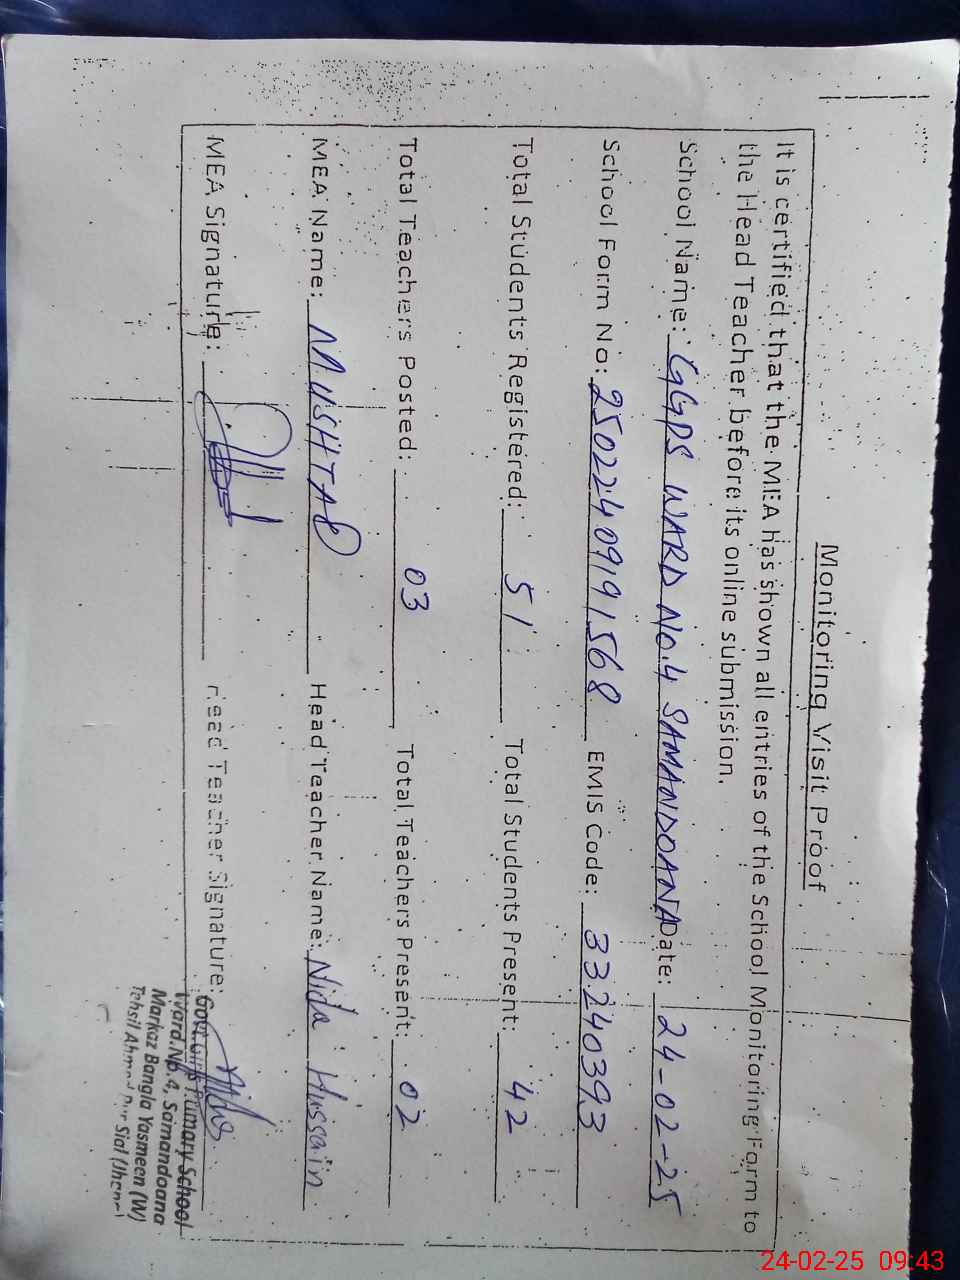 Monitoring Visit Proof
It is certified that the MEA has shown all entries of the School Monitoring Form to
the Head Teacher before its online submission.
School Name: GGPS WARD No.4 SAMANDOANA Date: 24-02-25
School Form No: 25022409191568 EMIS Code: 33240393
Total Students Registered: 51 Total Students Present: 42
Total Teachers Posted: 03 Total Teachers Present: 02
MEA Name: MUSHTAQ Head Teacher Name: Nida Hussain
MEA Signature: Head Teacher Signature: Nida
Govt. Girls Primary School
Ward.No.4, Samandoana
Markaz Bangla Yasmeen (W)
Tehsil Ahmad Pur Sial (Jhang)
24-02-25 09:43